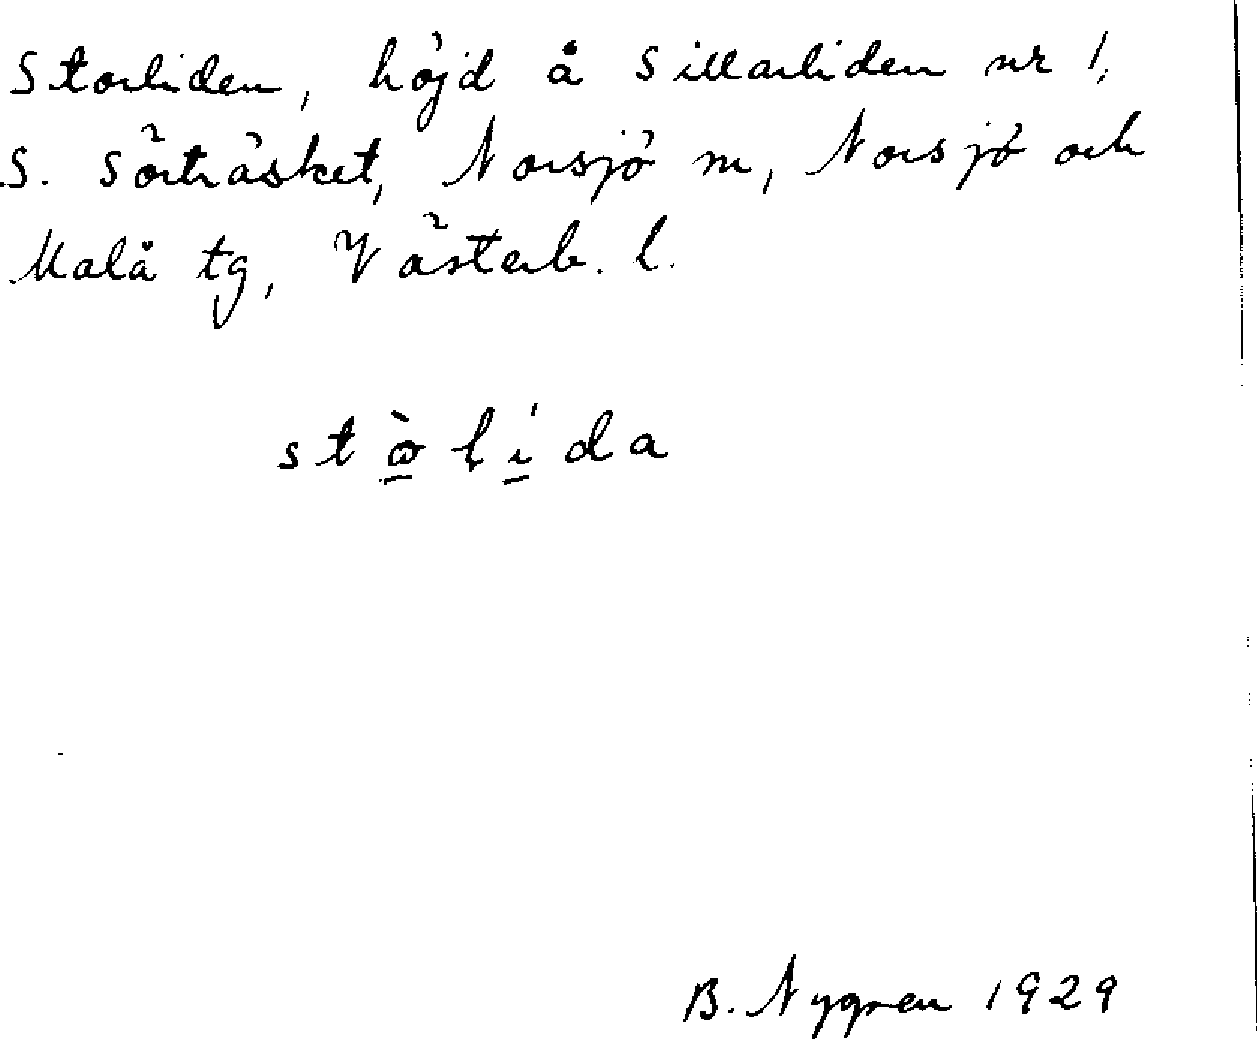 Storliden, höjd å Sillarliden nr 1,
S. Sörträsket, Norsjö m, Norsjö och
Malå tg, Västerb. l.
stò̱lí̱da
B. Nygren 1929